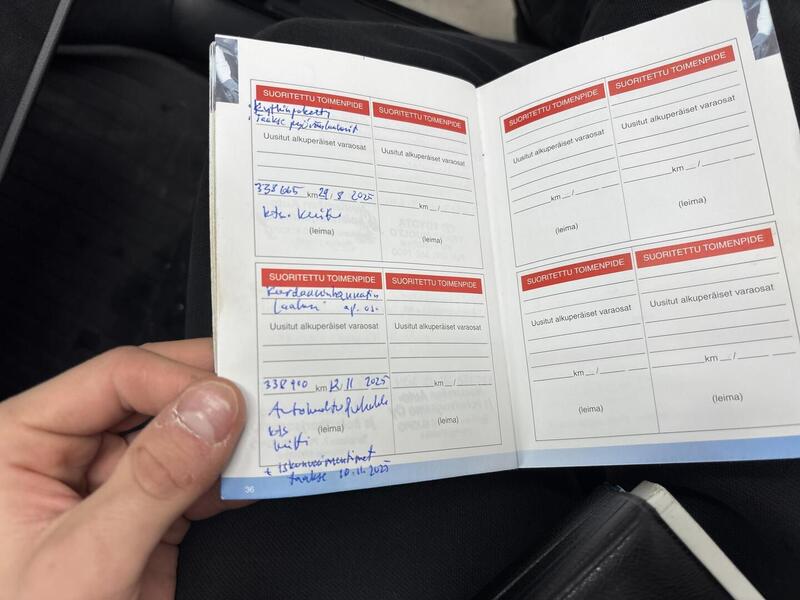 SUORITETTU TOIMENPIDE
Kytkinpaketti
Taakse pyöränlaakerit
Uusitut alkuperäiset varaosat
338665 km 29/8 2025
kts. kuitti
(leima)
SUORITETTU TOIMENPIDE
Uusitut alkuperäiset varaosat
km __/__
(leima)
SUORITETTU TOIMENPIDE
Kardaanin kannatin
laakeri
Uusitut alkuperäiset varaosat
338900 km 12/11 2025
Autohuolto
kts
kuitti
(leima)
+ iskunvaimentimet
taakse 10.11.2025
SUORITETTU TOIMENPIDE
Uusitut alkuperäiset varaosat
km __/__
(leima)
36
SUORITETTU TOIMENPIDE
Uusitut alkuperäiset varaosat
km __/__
(leima)
SUORITETTU TOIMENPIDE
Uusitut alkuperäiset varaosat
km __/__
(leima)
SUORITETTU TOIMENPIDE
Uusitut alkuperäiset varaosat
km __/__
(leima)
SUORITETTU TOIMENPIDE
Uusitut alkuperäiset varaosat
km __/__
(leima)